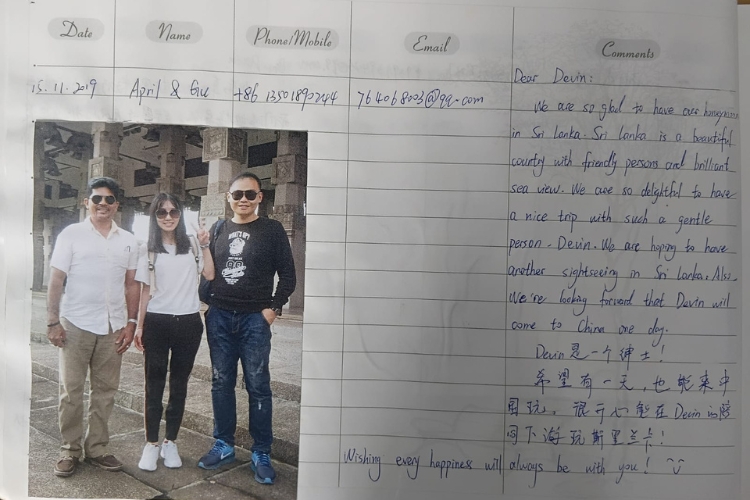 Date Name Phone/Mobile Email Comments
15.11.2019 April & Gu +86 13501890244 764068003@qq.com
Dear Devin:
We are so glad to have our honeymoon
in Sri Lanka. Sri Lanka is a beautiful
country with friendly persons and brilliant
sea view. We are so delightful to have
a nice trip with such a gentle
person, Devin. We are hoping to have
another sightseeing in Sri Lanka. Also,
We're looking forward that Devin will
come to China one day.
Devin是一个绅士!
希望有一天,也能来中
国玩。很开心能在Devin的陪
同下游玩斯里兰卡!
Wishing every happiness will always be with you!